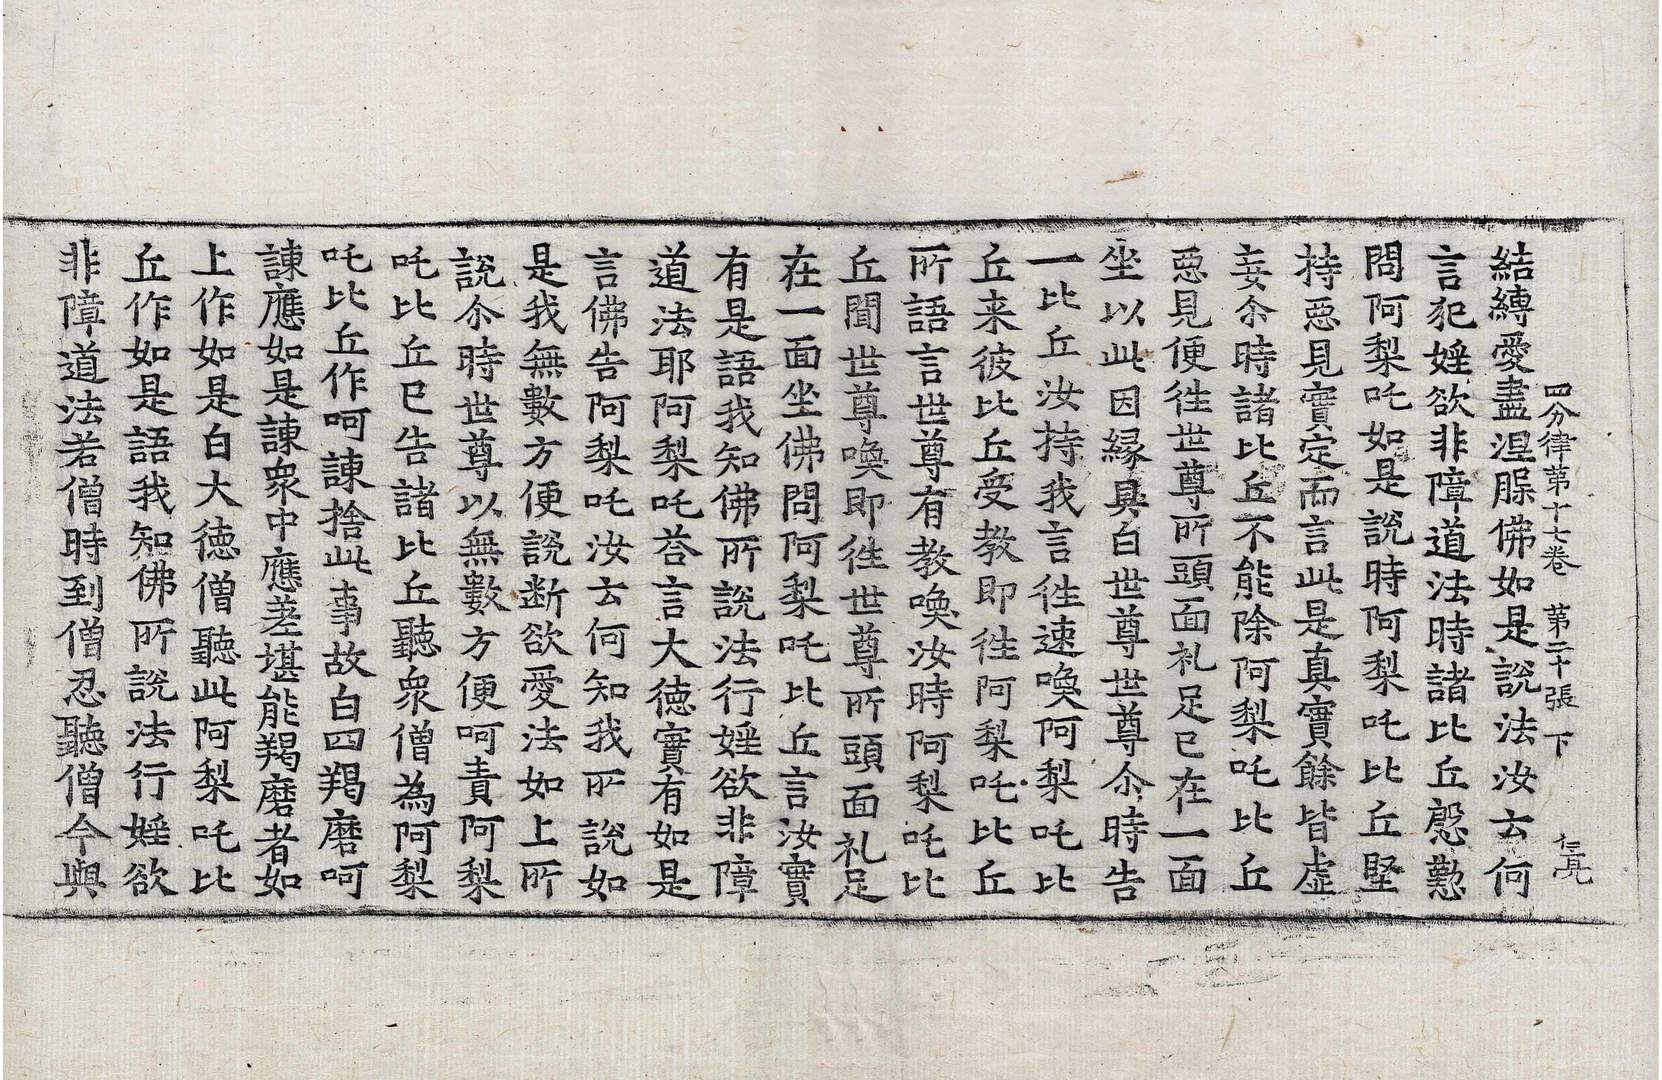 四分律第十七卷 第二十張 下 仁亮
結縛愛盡涅槃佛如是說法汝云何
言犯婬欲非障道法時諸比丘慇懃
問阿梨吒如是說時阿梨吒比丘堅
持惡見實定而言此是真實餘皆虛
妄尒時諸比丘不能除阿梨吒比丘
惡見便徃世尊所頭面礼足已在一面
坐以此因緣具白世尊世尊尒時告
一比丘汝持我言徃速喚阿梨吒比
丘来彼比丘受教即徃阿梨吒比丘
所語言世尊有教喚汝時阿梨吒比
丘聞世尊喚即徃世尊所頭面礼足
在一面坐佛問阿梨吒比丘言汝實
有是語我知佛所說法行婬欲非障
道法耶阿梨吒荅言大德實有如是
言佛告阿梨吒汝云何知我所說如
是我無數方便說断欲愛法如上所
說尒時世尊以無數方便呵責阿梨
吒比丘已告諸比丘聽衆僧為阿梨
吒比丘作呵諫捨此事故白四羯磨呵
諫應如是諫衆中應差堪能羯磨者如
上作如是白大德僧聽此阿梨吒比
丘作如是語我知佛所說法行婬欲
非障道法若僧時到僧忍聽僧今與